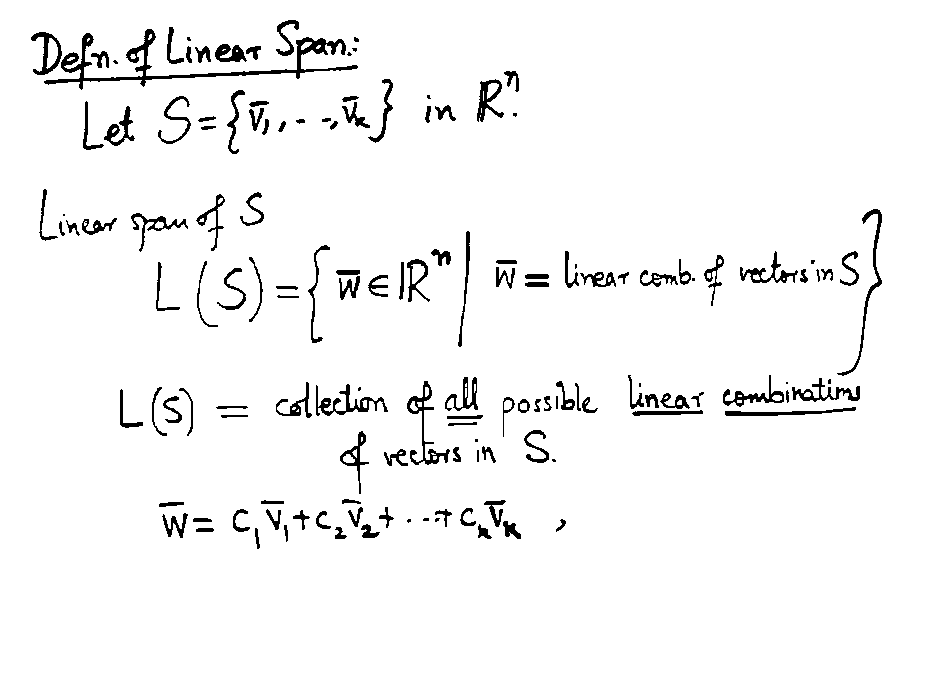 Defn. of Linear Span:
Let S = {v̄₁, . . , v̄ₖ} in ℝⁿ.
Linear span of S
L(S) = { w̄ ∈ ℝⁿ | w̄ = linear comb. of vectors in S }
L(S) = collection of all possible linear combinations
of vectors in S.
w̄ = c₁v̄₁ + c₂v̄₂ + ... + cₖv̄ₖ ,